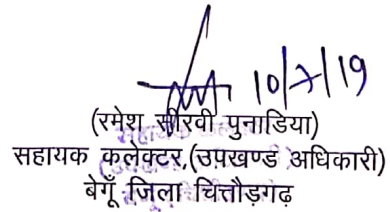 10/7/19
(रमेश सीरवी पुनाडिया)
सहायक कलेक्टर,(उपखण्ड अधिकारी)
बेगूँ जिला चित्तौड़गढ़